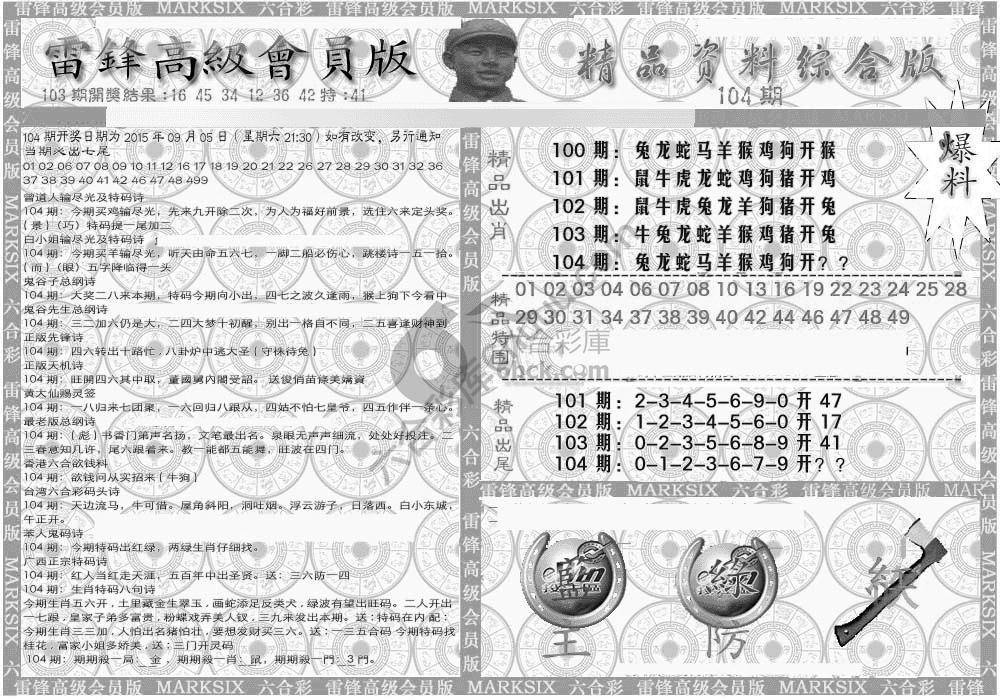 雷锋高级会员版 MARKSIX 六合彩 雷锋高级会员版 MARKSIX 六合彩 雷锋高级会员版 MARKSIX 六合彩
雷鋒高級會員版
精品资料综合版
103期開獎結果:16 45 34 12 36 42特:41
104期
爆料
104期开奖日期为2015年09月05日(星期六21:30)如有改变,另行通知
当期必出七尾
01 02 06 07 08 09 10 11 12 16 17 18 19 20 21 22 26 27 28 29 30 31 32 36
37 38 39 40 41 42 46 47 48 499
曾道人输尽光及特码诗
104期:今期买鸡输尽光,先来九开除二次,为人为福好前景,选住六来定头奖。
{景}(巧)特码提一尾加二
白小姐输尽光及特码诗
104期:今期买羊输尽光,听天由命五六七,一脚二船必伤心,跳楼诗一五一拾。
{而}(眼)五字降临得一头
鬼谷子总纲诗
104期:大奖二八来本期,特码今期向小出,四七之波久逢雨,猴上狗下今看中
鬼谷先生总纲诗
104期:三二加六仍是大,二四大梦十初醒,别出一格自不同,二五喜逢财神到
正版先锋诗
104期:四六转出十路忙,八卦炉中逃大圣{守株待兔}
正版天机诗
104期:旺開四六其中取,董國舅內閣受詔。送俊俏苗條美嬌資
黄大仙赐灵签
104期:一八归来七团聚,一六回归八跟从,四姑不怕七皇爷,四五作伴一条心。
最老版总纲诗
104期:{彪}书香门第声名扬,文笔最出名。泉眼无声声细流,处处好投注。二
三春意知几许,尾六跟着来。教一能都五能舞,旺波在四门。
香港六合欲钱料
104期:欲钱问从实招来{牛狗}
台湾六合彩码头诗
104期:天边流马,牛可借。屋角斜阳,洞吐烟。浮云游子,日落西。白小东城,
午正开。
本人鬼码诗
104期:今期特码出红绿,两绿生肖仔细找。
广西正宗特码诗
104期:红人当红走天涯,五百年中出圣贤。送:三六防一四
104期:生肖特码八句诗
今期生肖五六开,土里藏金生翠玉,画蛇添足反类犬,绿波有望出旺码。二人开出
一七跟,皇家子弟多富贵,粉蝶戏弄美人钗,三九来发出本期。送:特码在内配:
今期生肖三三加,人怕出名猪怕壮,要想发财买三六。送:一三五合码 今期特码找
桂花,富家小姐多娇美,送:三门开灵码
104期:期期殺一局:金,期期殺一肖:鼠,期期殺一門:3門。
精品出肖
100期:兔龙蛇马羊猴鸡狗开猴
101期:鼠牛虎龙蛇鸡狗猪开鸡
102期:鼠牛虎兔龙羊狗猪开兔
103期:牛兔龙蛇羊猴鸡猪开兔
104期:兔龙蛇马羊猴鸡狗开??
精品特围
01 02 03 04 06 07 08 10 13 16 19 22 23 24 25 28
29 30 31 34 37 38 39 40 42 44 46 47 48 49
六合彩庫
6hck.com
精品出尾
101期:2-3-4-5-6-9-0开47
102期:1-2-3-4-5-6-0开17
103期:0-2-3-5-6-8-9开41
104期:0-1-2-3-6-7-9开??
雷锋高级会员版 MARKSIX 六合彩 雷锋高级会员版 MAR
主
防
雷锋高级会员版 MARKSIX 六合彩 雷锋高级会员版 MARKSIX 六合彩 雷锋高级会员版 MARKSIX 六合彩